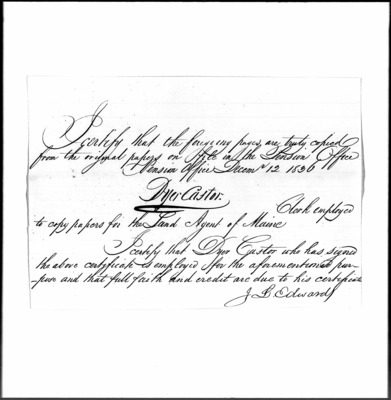 I certify that the foregoing pages, are truly copied
from the original papers on file in the Pension Office
Pension Office Decem^r 12 1836
Dyer Castor.
Clerk employed
to copy papers for the Land Agent of Maine
I certify that Dyer Castor who has signed
the above certificate is employed for the aforementioned pur-
-pose and that full faith and credit are due to his certificate
J L Edwards